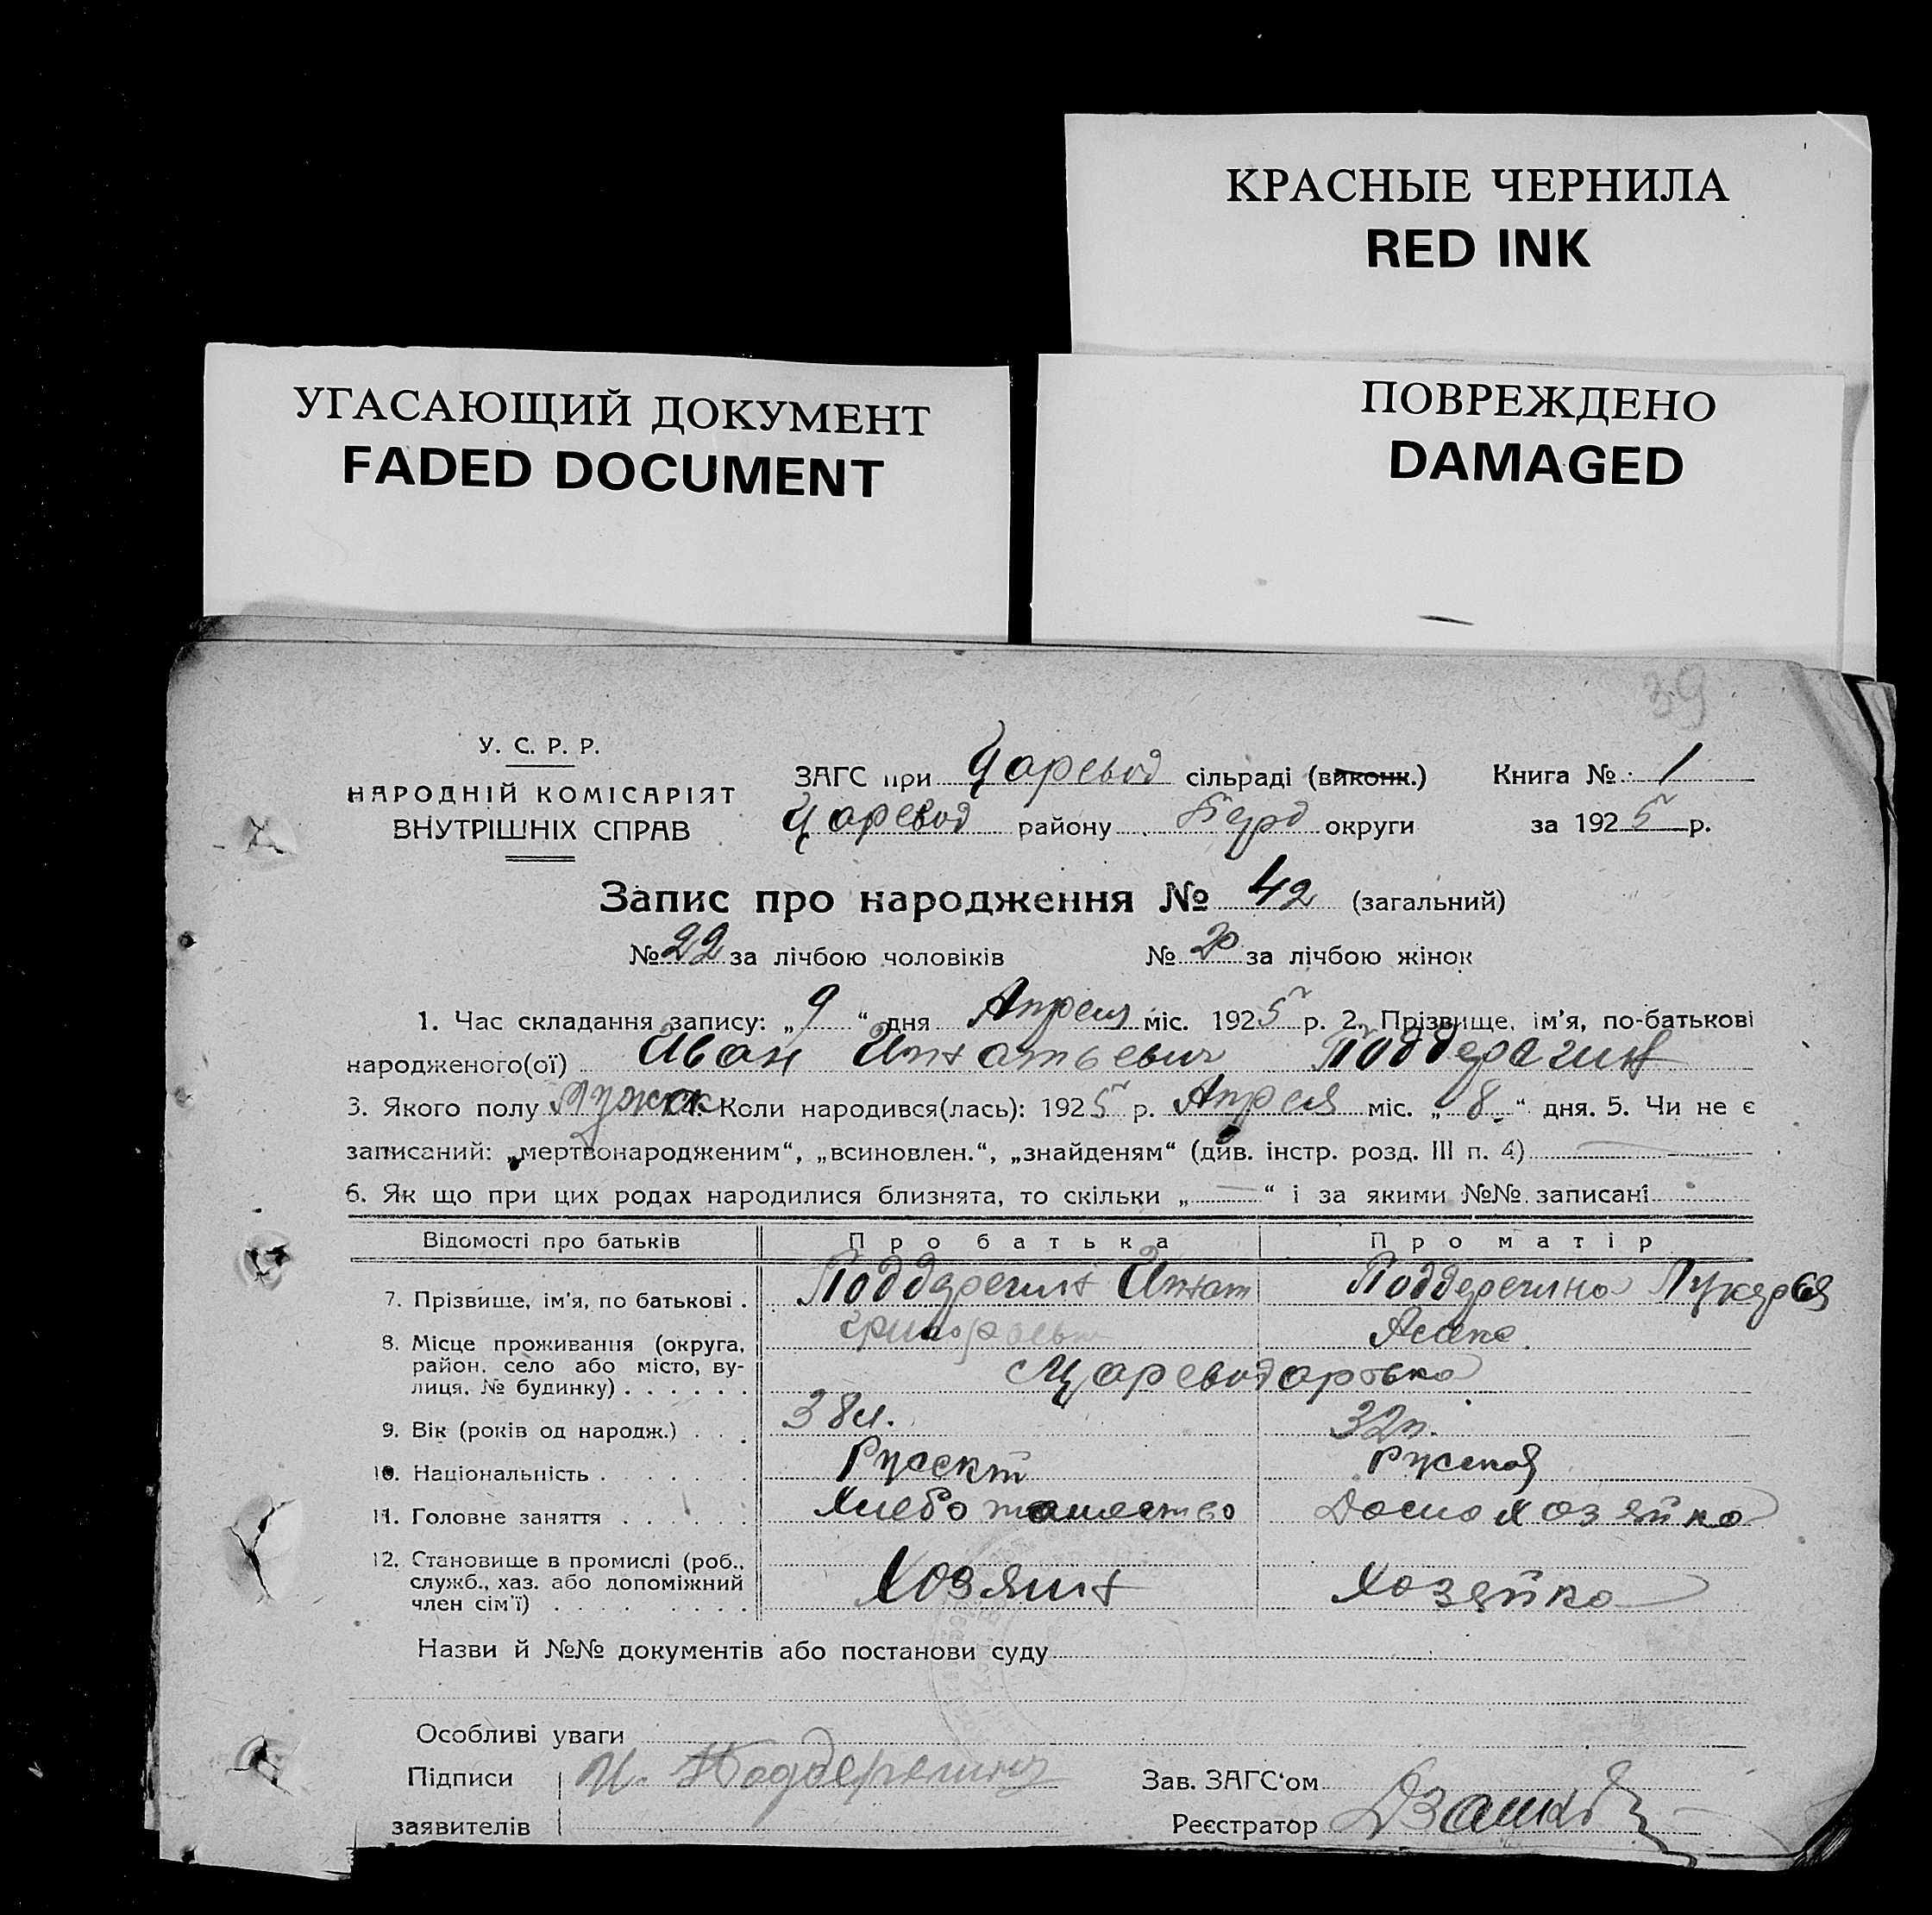 КРАСНЫЕ ЧЕРНИЛА
RED INK
УГАСАЮЩИЙ ДОКУМЕНТ
FADED DOCUMENT
ПОВРЕЖДЕНО
DAMAGED
39
У. С. Р. Р.
НАРОДНІЙ КОМІСАРІЯТ
ВНУТРІШНІХ СПРАВ
ЗАГС при Царевод сільраді (виконк.) Книга № 1
Царевод району Берд округи за 1925 р.
Запис про народження № 42 (загальний)
№ 22 за лічбою чоловіків № 20 за лічбою жінок
1. Час складання запису: „9“ дня Апреля міс. 1925 р. 2. Прізвище, ім'я, по-батькові
народженого(ої) Иван Игнатьевич Поддерегин
3. Якого полу Мужск Коли народився(лась): 1925 р. Апреля міс. „8“ дня. 5. Чи не є
записаний: „мертвонародженим“, „всиновлен.“, „знайденям“ (див. інстр. розд. III п. 4)
6. Як що при цих родах народилися близнята, то скільки „—“ і за якими №№ записані
Відомості про батьків Про батька Про матір
7. Прізвище, ім'я, по батькові . Поддерегин Игнат Поддерегина Лукерья
8. Місце проживання (округа,
район, село або місто, вулиця, № будинку) . . . . . . Цареводаровка
9. Вік (років од народж.) . . . 38 л. 32 л.
10. Національність . . . . . . . Русский Русская
11. Головне заняття . . . . . . Хлебопашество Домохозяйка
12. Становище в промислі (роб.,
служб., хаз. або допоміжний
член сім'ї) . . . . . . . . . Хозяин Хозяйка
Назви й №№ документів або постанови суду
Особливі уваги
Підписи И. Поддерегин Зав. ЗАГС'ом
заявителів Реєстратор